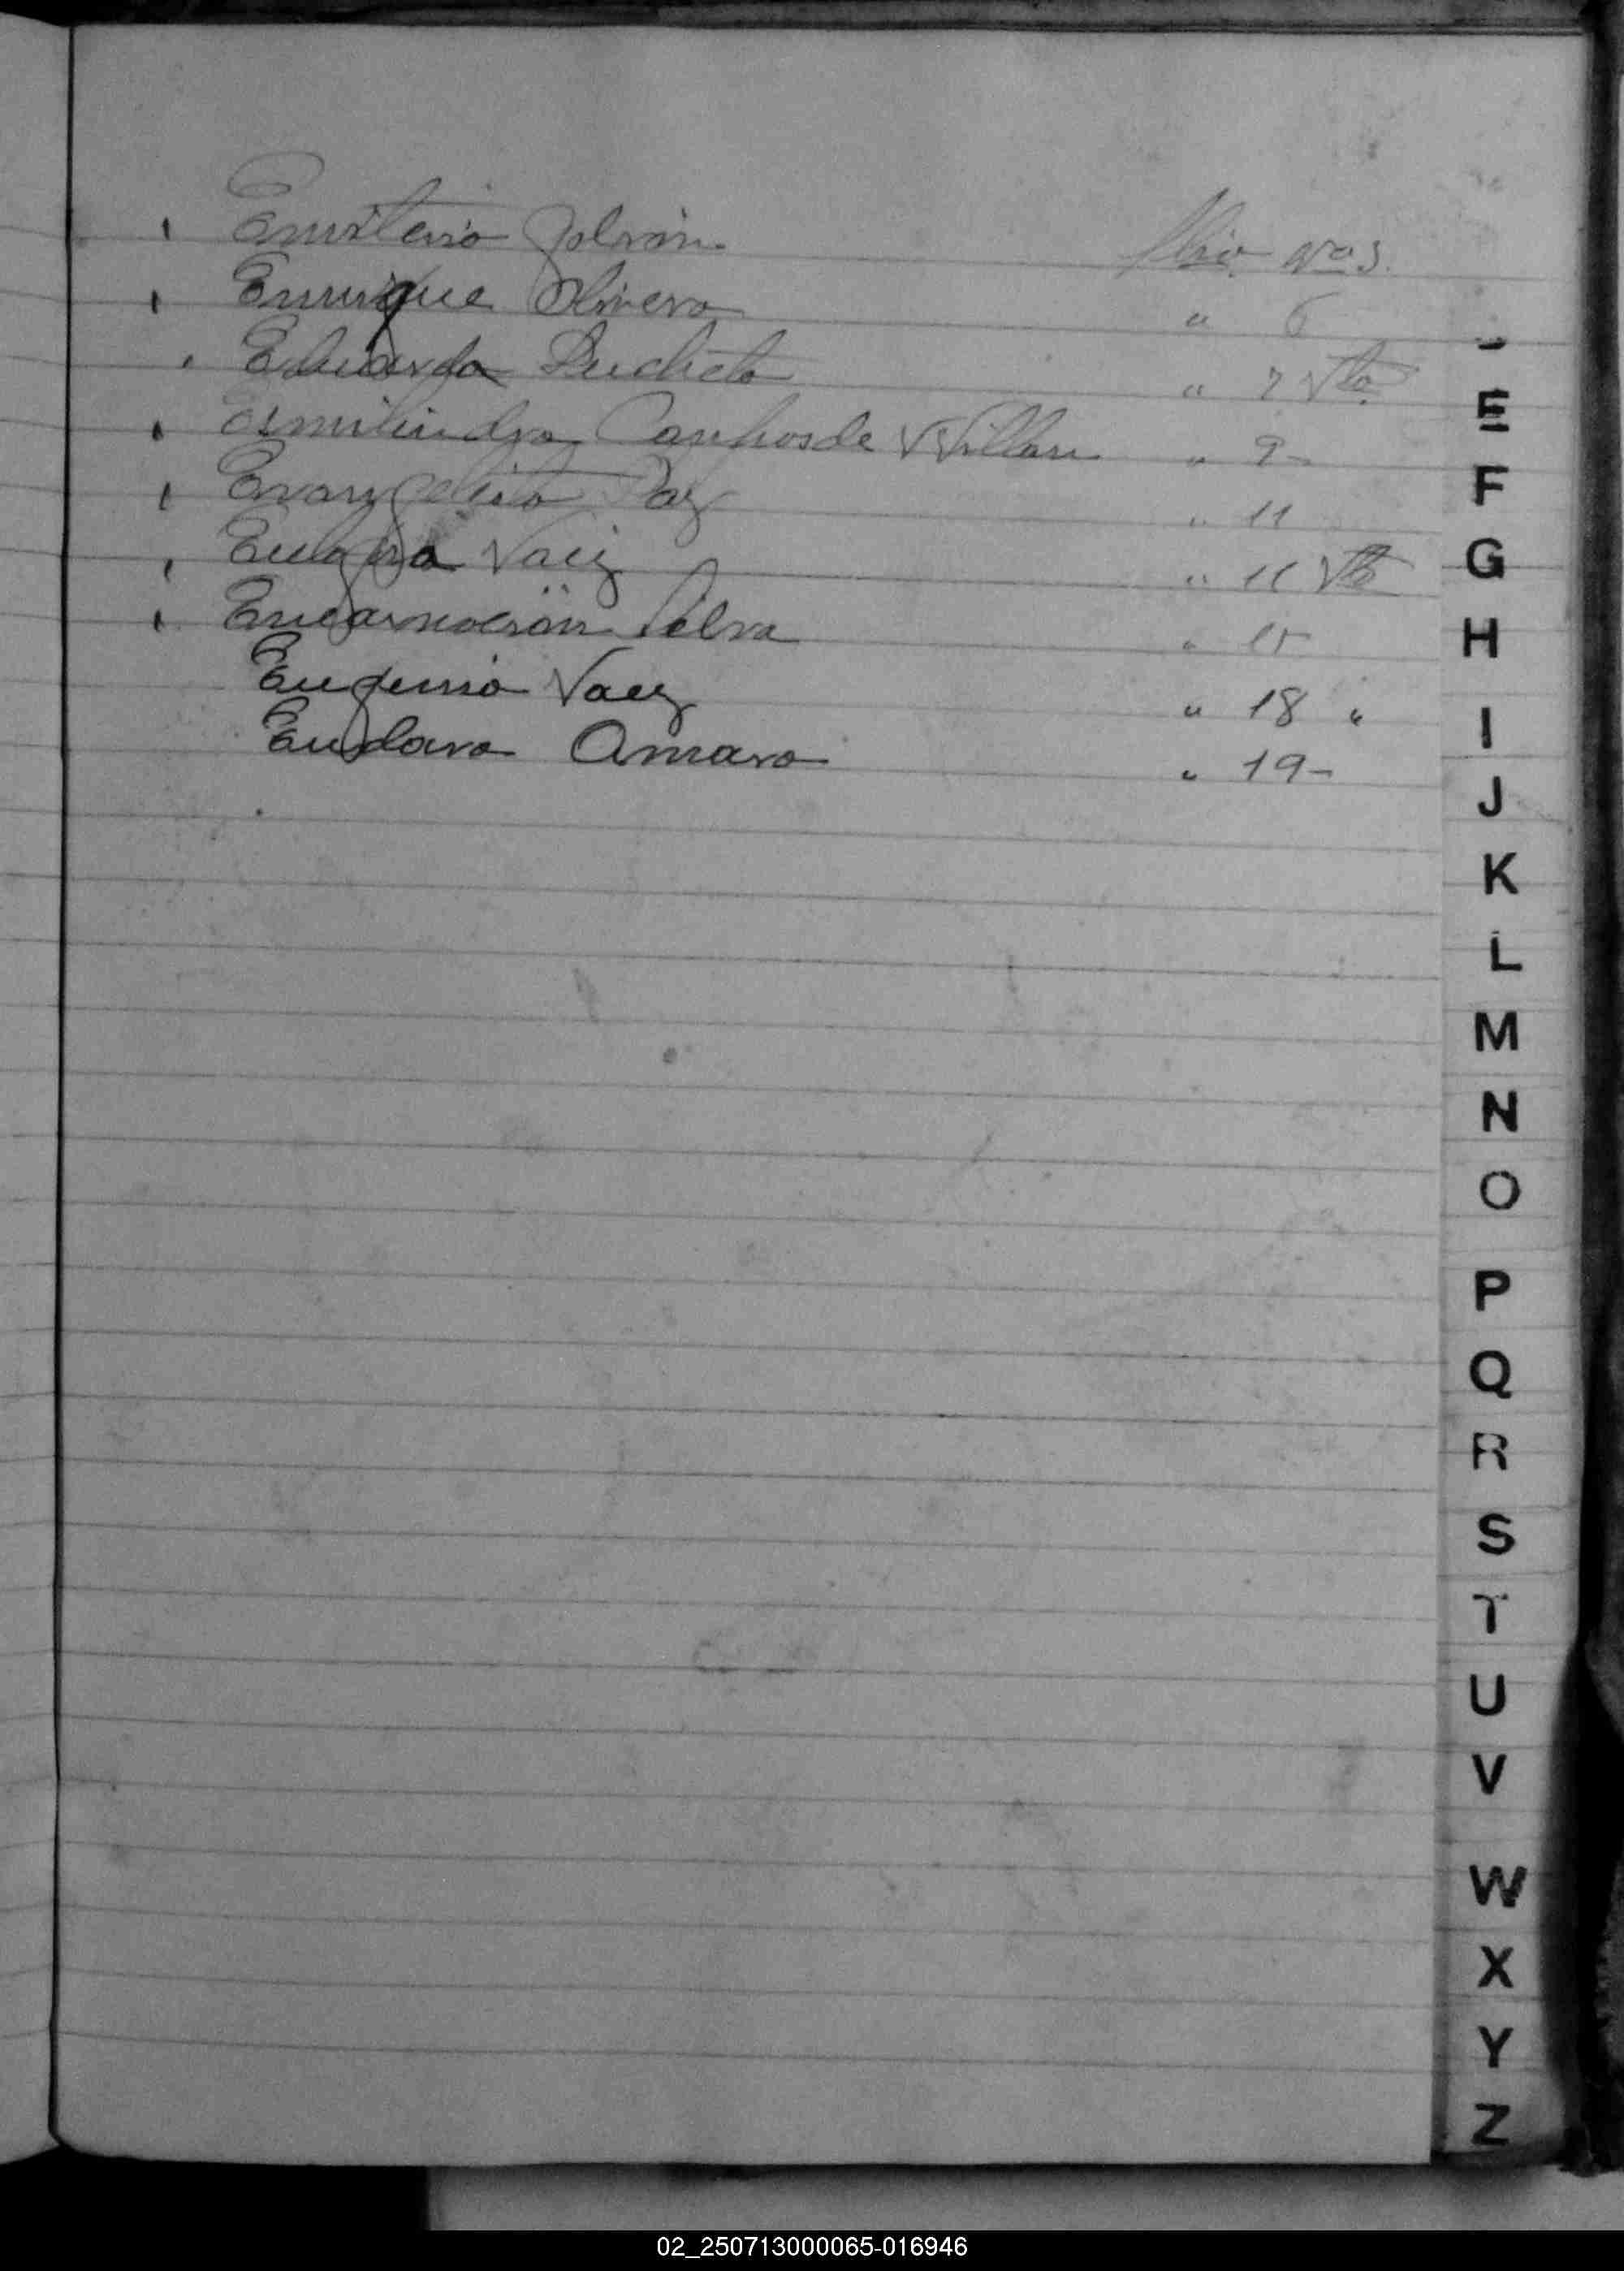 Emiterio Galván folio nº 3.
Enrique Olivera " 6
Eduardo Lucheta " 7 Vta
Ermilindra Campos de Villan " 9-
Evangelista Paz " 11
Vaez " 11 Vta
Encarnación Selva " 15
Eugenio Vaez " 18 "
Amaro " 19-
E
F
G
H
I
J
K
L
M
N
O
P
Q
R
S
T
U
V
W
X
Y
Z
02_250713000065-016946